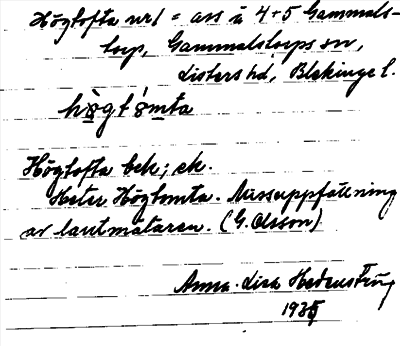 Högtofta nr 1 = avs å 4+5 Gammals-
torp, Gammalstorps sn,
Listers hd, Blekinge l.
högtómta
Högtofta bek; ek.
Heter Högtomta. Missuppfattning
av lantmätaren. (G. Olsson)
Anna-Lisa Hedenström